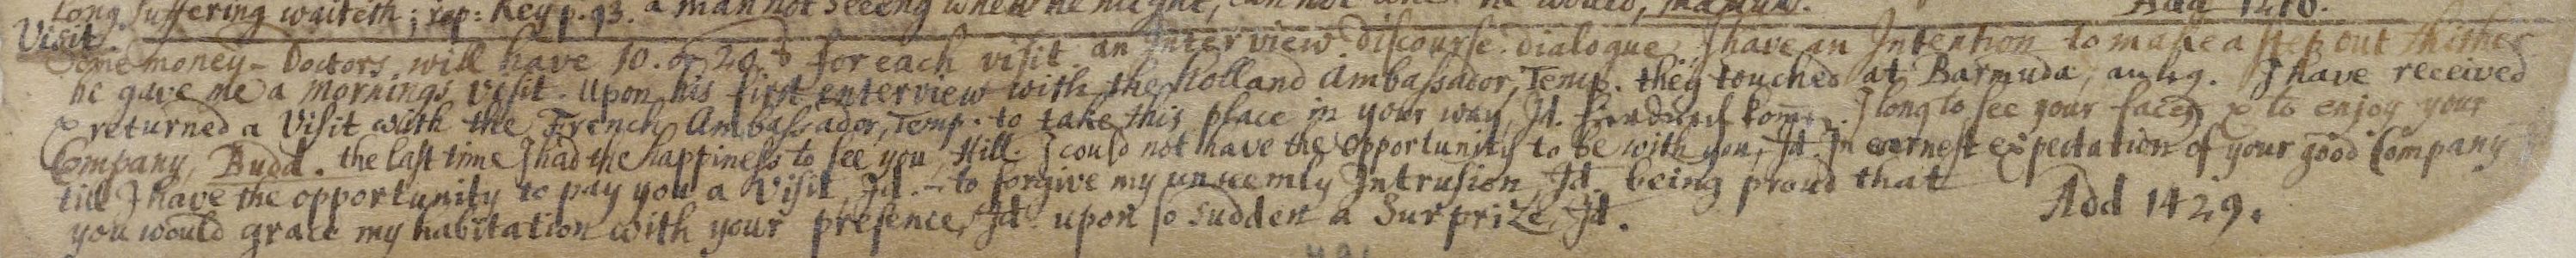 Long suffering waiteth; rep: Key p. 93. a man not seeing when he might, can not when he would,
Add 1210.
Visit. Some money - Doctors will have 10. or 20. s for each visit. an Interview. discourse. dialogue, I have an Intention to make a step out thither
he gave me a mornings visit. Upon his first enterview with the Holland Ambassador, Temp. they touched at Barmuda, I have received
& returned a Visit with the French Ambassador, Temp. to take this place in your way, Jd. I long to see your face, & to enjoy your
Company, Budd. the last time I had the happiness to see you, Hill. I could not have the opportunity to be with you, Jd. In earnest expectation of your good Company
till I have the opportunity to pay you a Visit, Jd. - to forgive my unseemly Intrusion, Jd. being proud that
you would grace my habitation with your presence, Jd. upon so sudden a Surprize, Jd.
Add 1429.